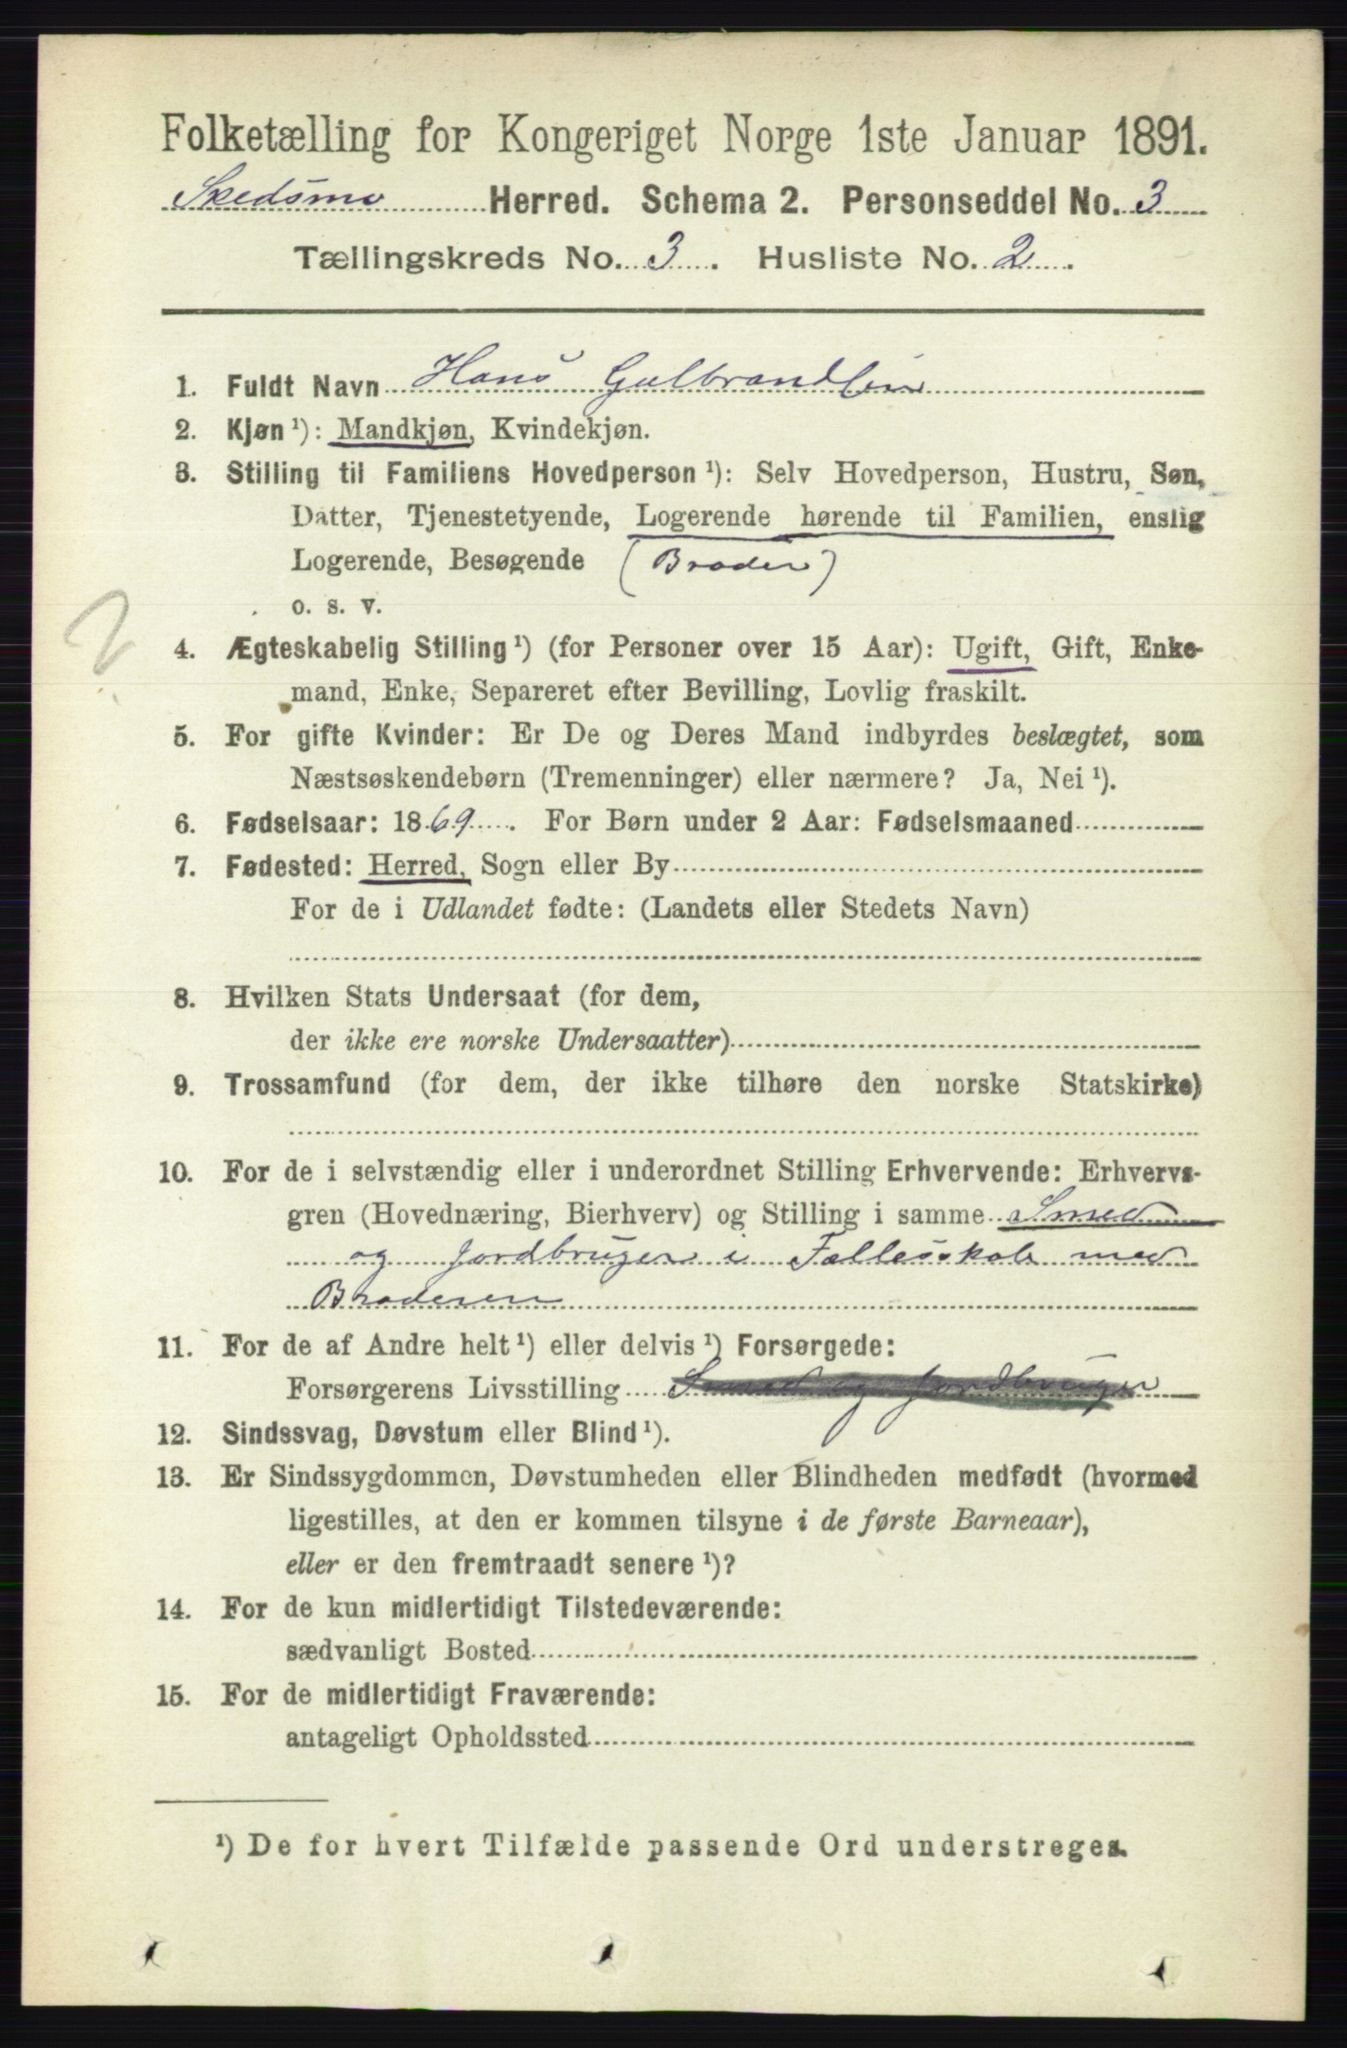 Folketælling for Kongeriget Norge 1ste Januar 1891.
Skedsmo Herred. Schema 2. Personseddel No. 3
Tællingskreds No. 3. Husliste No. 2.
1. Fuldt Navn Hans Gulbrandsen
2. Kjøn ¹): Mandkjøn, Kvindekjøn.
3. Stilling til Familiens Hovedperson ¹): Selv Hovedperson, Hustru, Søn,
Datter, Tjenestetyende, Logerende hørende til Familien, enslig
Logerende, Besøgende (Broder)
o. s. v.
2
4. Ægteskabelig Stilling ¹) (for Personer over 15 Aar): Ugift, Gift, Enke-
mand, Enke, Separeret efter Bevilling, Lovlig fraskilt.
5. For gifte Kvinder: Er De og Deres Mand indbyrdes beslægtet, som
Næstsøskendebørn (Tremenninger) eller nærmere? Ja, Nei ¹).
6. Fødselsaar: 1869. For Børn under 2 Aar: Fødselsmaaned
7. Fødested: Herred, Sogn eller By
For de i Udlandet fødte: (Landets eller Stedets Navn)
8. Hvilken Stats Undersaat (for dem,
der ikke ere norske Undersaatter)
9. Trossamfund (for dem, der ikke tilhøre den norske Statskirke)
10. For de i selvstændig eller i underordnet Stilling Erhvervende: Erhvervs-
gren (Hovednæring, Bierhverv) og Stilling i samme Smed
og Jordbruger i Fællesskab med
Broderen
11. For de af Andre helt ¹) eller delvis ¹) Forsørgede:
Forsørgerens Livsstilling Smed og Jordbruger
12. Sindssvag, Døvstum eller Blind ¹).
13. Er Sindssygdommen, Døvstumheden eller Blindheden medfødt (hvormed
ligestilles, at den er kommen tilsyne i de første Barneaar),
eller er den fremtraadt senere ¹)?
14. For de kun midlertidigt Tilstedeværende:
sædvanligt Bosted
15. For de midlertidigt Fraværende:
antageligt Opholdssted
¹) De for hvert Tilfælde passende Ord understreges.